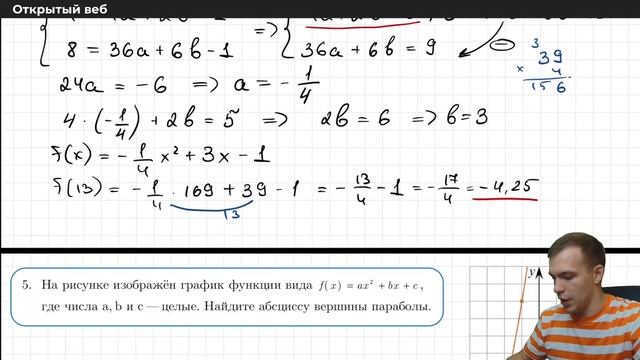 Открытый веб
8 = 36a + 6b - 1 => 36a + 6b = 9
24a = -6 => a = -1/4
3
39
× 4
156
4 · (-1/4) + 2b = 5 => 2b = 6 => b = 3
f(x) = -1/4 x² + 3x - 1
f(13) = -1/4 · 169 + 39 - 1 = -13/4 - 1 = -17/4 = -4,25
13
5. На рисунке изображён график функции вида f(x) = ax² + bx + c,
где числа a, b и c — целые. Найдите абсциссу вершины параболы.
y